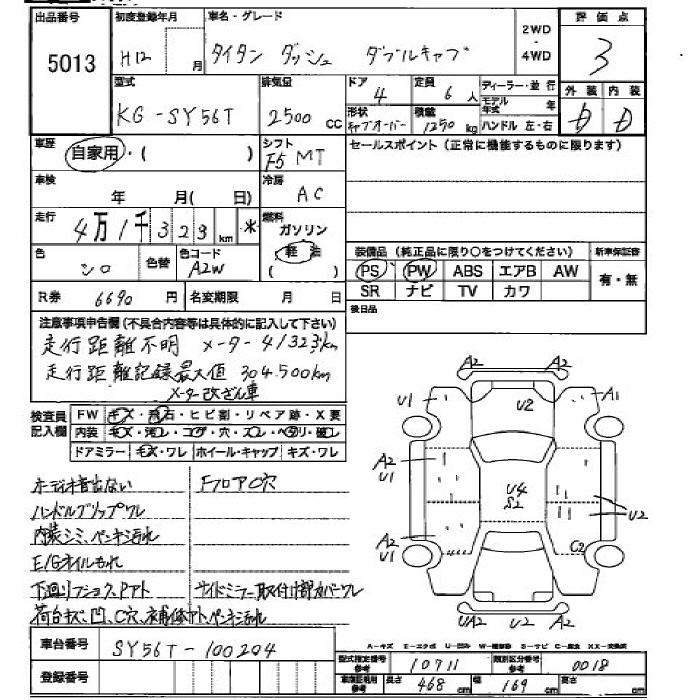 出品番号 初度登録年月 車名・グレード 2WD・4WD 評価点
5013 H12 月 タイタン ダッシュ ダブルキャブ 3
型式 排気量 ドア 定員 ディーラー・並行 外装 内装
KG-SY56T 2500 CC 4 6人 モデル年式 年 D D
形状 キャブオーバー 積載 1250 kg ハンドル 左・右
車歴 自家用・( ) シフト F5 MT セールスポイント(正常に機能するものに限ります)
車検 年 月( 日) 冷房 AC
走行 4万1千323 km * 燃料 ガソリン 軽油
色 シロ 色替 色コード A2W
装備品(純正品に限り○をつけてください) 新車保証書
PS PW ABS エアB AW 有・無
SR ナビ TV カワ
R券 6690 円 名変期限 月 日 後日品
注意事項申告欄(不具合内容等は具体的に記入して下さい)
走行距離不明 メーター 41323km
走行距離記録最大値 304.500km
メーター改ざん車
検査員記入欄 FW キズ・飛石・ヒビ割・リペア跡・X要
内装 キズ・汚レ・コゲ・穴・スレ・ヘタリ・破レ
ドアミラー キズ・ワレ ホイール・キャップ キズ・ワレ
オーディオ音出ない FフロアC穴
ハンドルグリップワレ
内装シミ、ペンキ汚れ
E/Gオイルもれ
下廻りフショク、Pアト サイドミラー取付け部カバーワレ
荷台キズ、凹、C穴、補修アト、ペンキ汚れ
A2
U1 U2 A1
A2
U1
U4
S2
U2
A2
U1
C2
UA2 A2
A-キズ E-エクボ U-凹み W-補修跡 S-サビ C-腐食 XX-交換済
車台番号 SY56T-100204
登録番号
型式指定番号 参考 10711 類別区分番号 参考 0018
車庫証明用 参考 長さ 468 cm 幅 169 cm